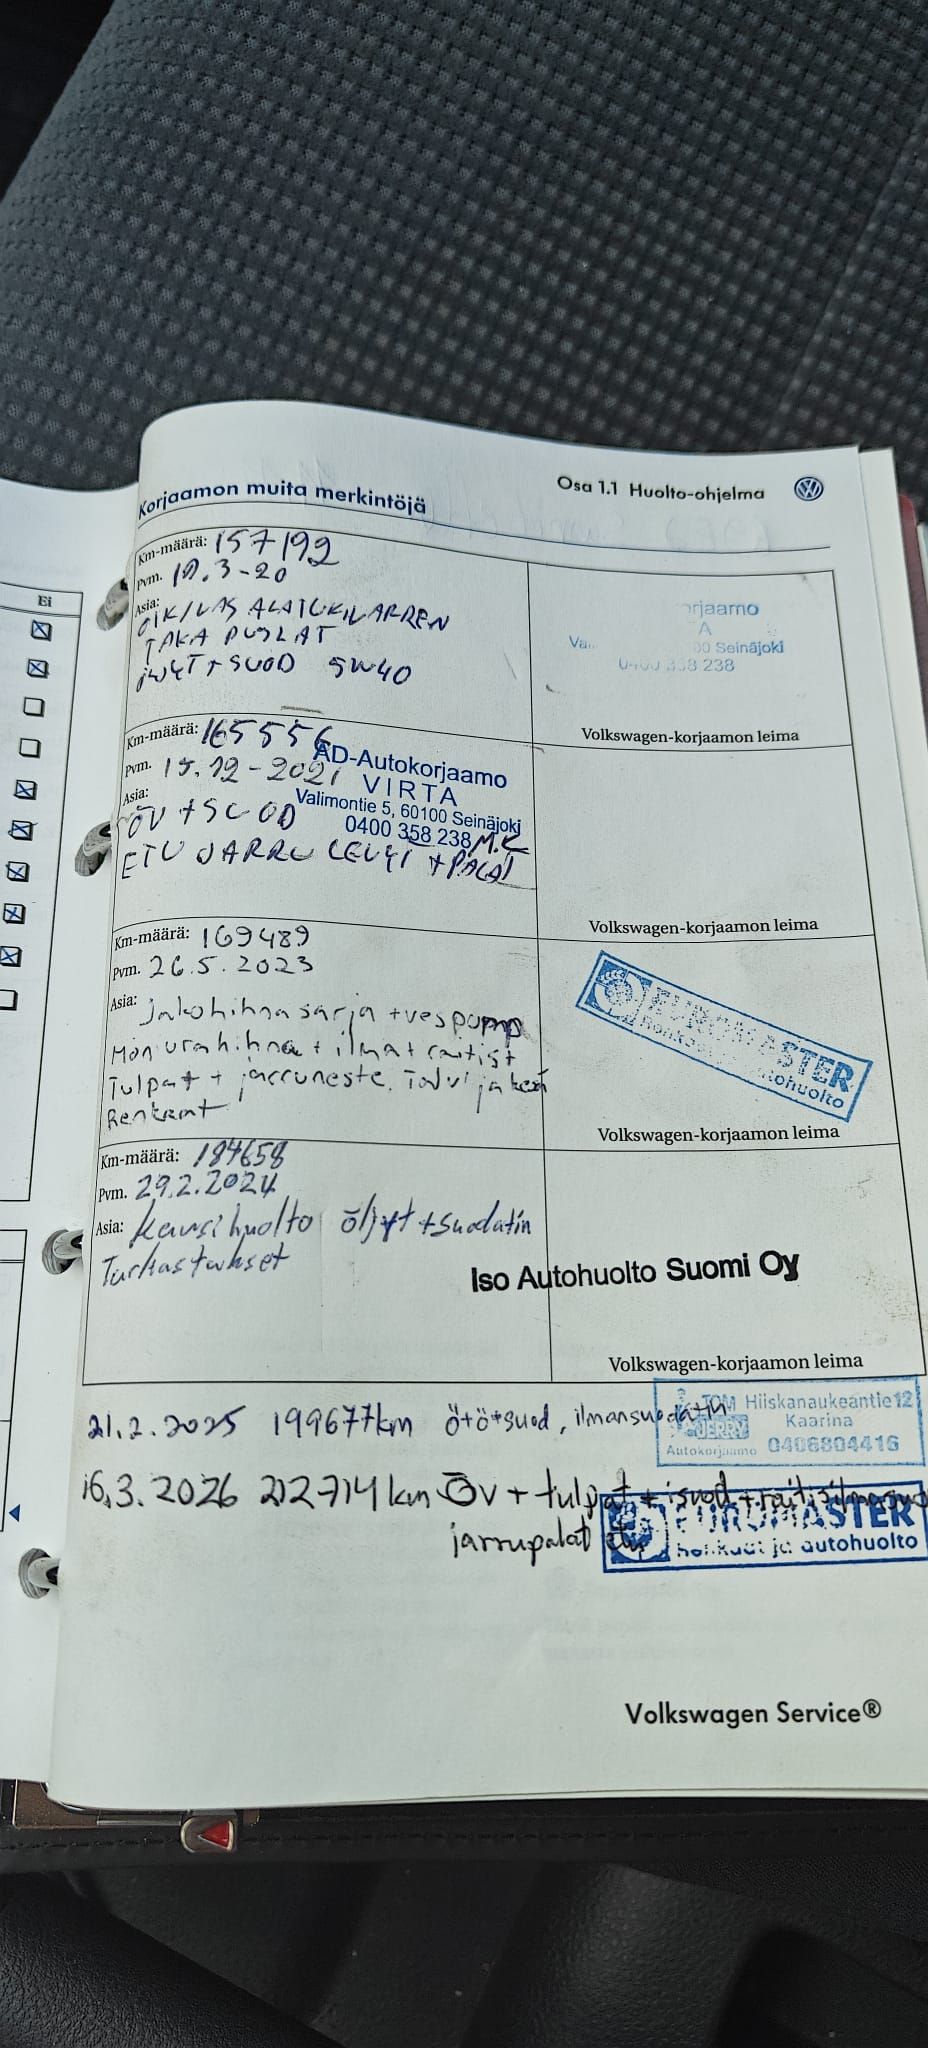 Korjaamon muita merkintöjä
Osa 1.1 Huolto-ohjelma
Ei
Km-määrä: 157192
Pvm. 19.3-20
Asia: OIKIAS ALATUKIVARREN
TAKA PUSLAT
ÖLJYT + SUOD 5W40
rjaamo
A
Va 00 Seinäjoki
0400 358 238
Volkswagen-korjaamon leima
Km-määrä: 165556
Pvm. 15.12-2021
Asia:
ÖV + SUOD
ETU JARRU LEVYT + PALAT
AD-Autokorjaamo
VIRTA
Valimontie 5, 60100 Seinäjoki
0400 358 238
M.K
Volkswagen-korjaamon leima
Km-määrä: 169489
Pvm. 26.5.2023
Asia: Jakohihnasarja + vespump
Moniurahihna + ilma + raitist
Tulpat + jarruneste. Talvi ja kesä
Renkaat
EUROMASTER
Renkaat autohuolto
Volkswagen-korjaamon leima
Km-määrä: 184658
Pvm. 29.2.2024
Asia: Kausihuolto öljyt + suodatin
Tarkastukset
Iso Autohuolto Suomi Oy
Volkswagen-korjaamon leima
21.2.2025 199677km Ö+Ö+suod, ilmansuodatin
TOM Hiiskanaukeantie12
JERRY Kaarina
Autokorjaamo 0406804416
16.3.2026 212714km Öv + tulpat + isuod + raitisilmasuo
jarrupalat etu
EUROMASTER
Renkaat ja autohuolto
Volkswagen Service®